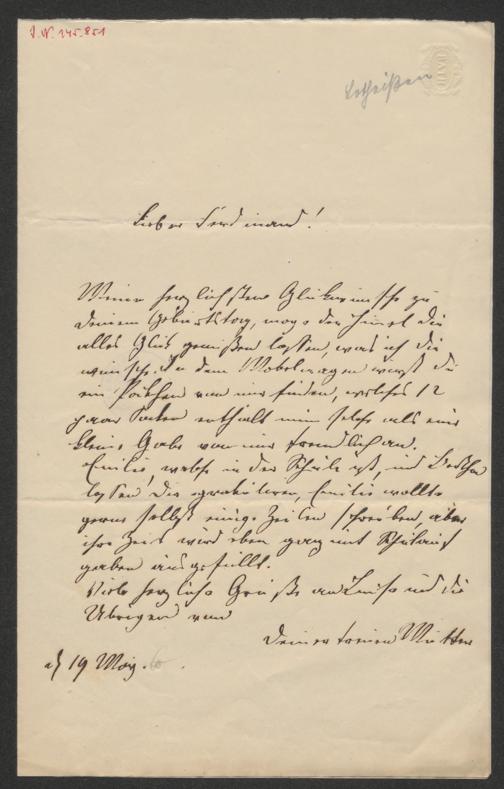 I.N. 145.851
BATH
Lotheißen
Lieber Ferdinand!
Meine herzlichsten Glückwünsche zu
deinem Geburtstag, möge der Himel dir
alles Glük genießen lassen, was ich dir
wünsche. In dem Möbelwagen wirst du
ein Päkchen von mir finden, welches 12
paar Soken enthält nim solche als eine
kleine Gabe von mir freundlich an.
Emilie, welche in der Schule ist, und
lassen dir gratuliren, Emilie wollte
gerne selbst einige Zeilen schreiben, aber
ihre Zeit wird eben ganz mit Schulauf
gaben ausgefüllt.
Viele herzliche Grüße an Luise und die
Übrigen von
deiner treuen Mutter
d 19 May.